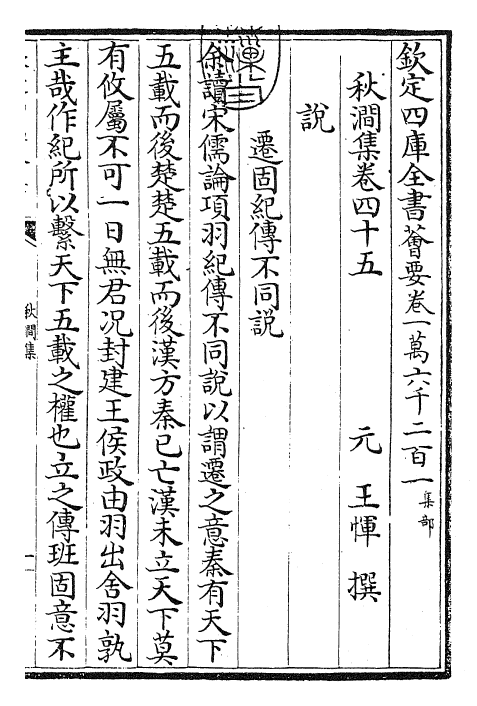 欽定四庫全書薈要卷一萬六千二百一集部
秋澗集卷四十五 元 王惲 撰
說
遷固紀傳不同說
余讀宋儒論項羽紀傳不同說以謂遷之意秦有天下
五載而後楚楚五載而後漢方秦已亡漢未立天下莫
有攸屬不可一日無君况封建王侯政由羽出舍羽孰
主哉作紀所以繫天下五載之權也立之傳班固意不
秋澗集
一